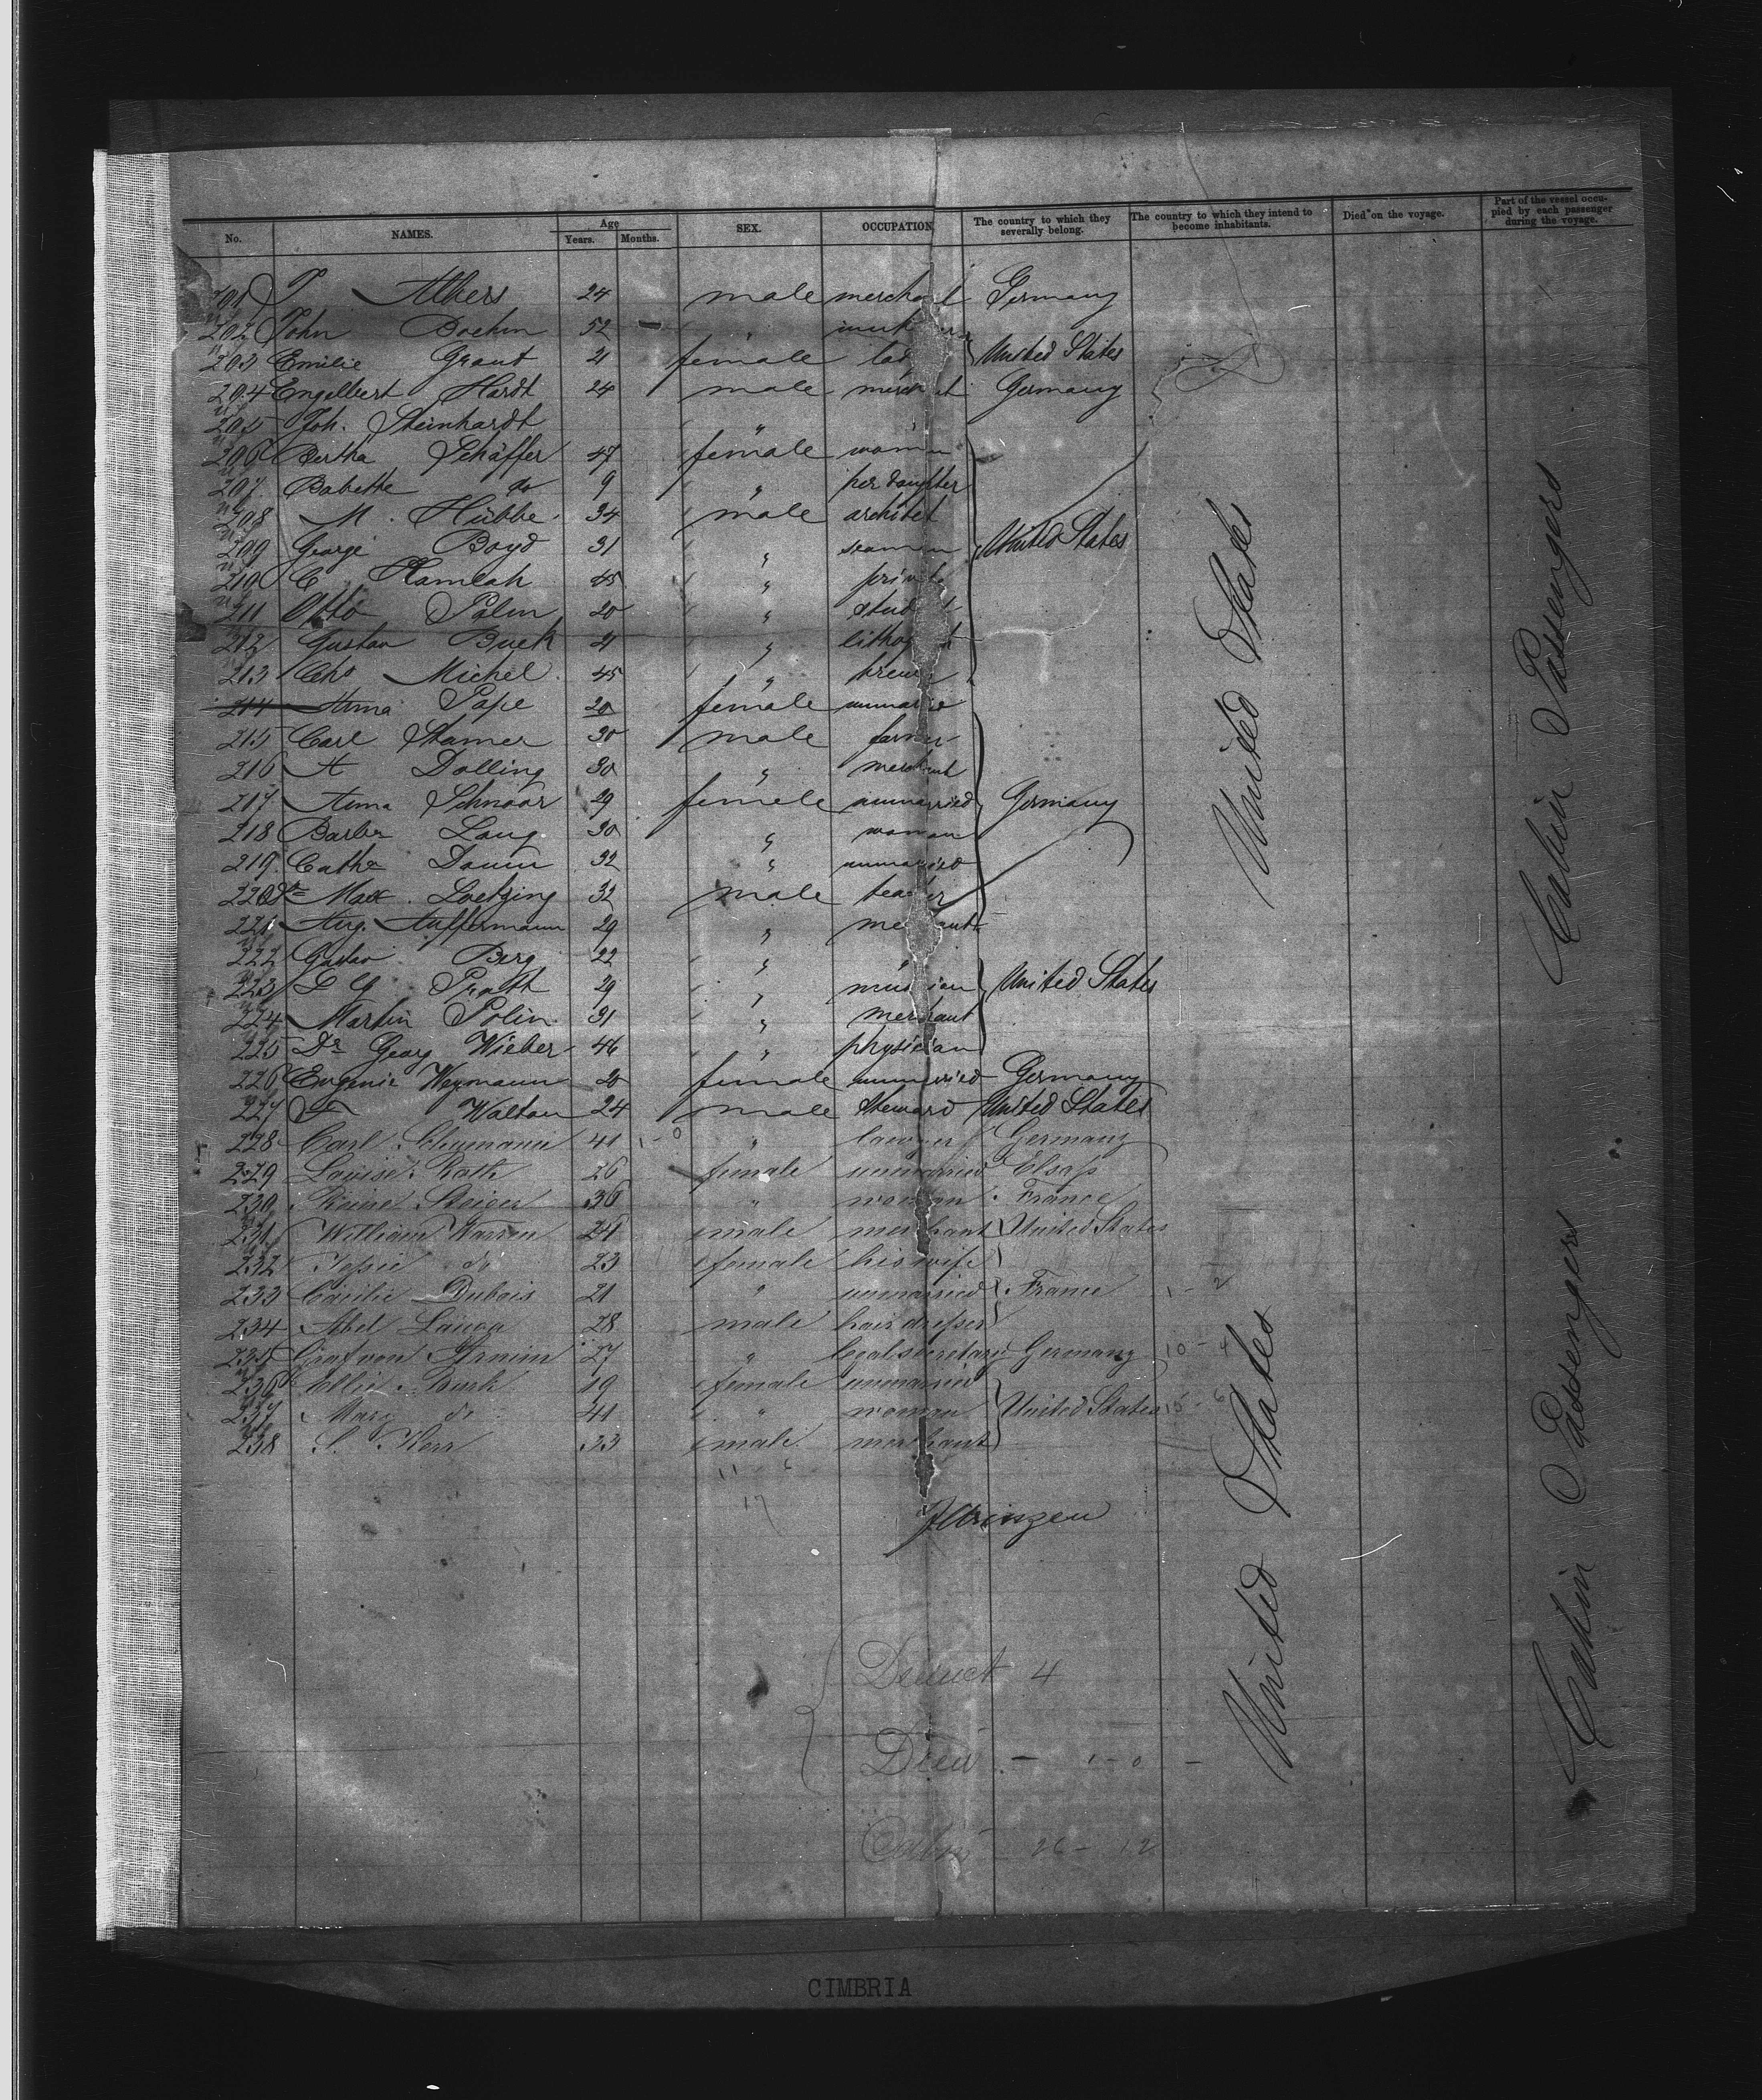 No. NAMES. Age Years. Months. SEX. OCCUPATION The country to which they severally belong. The country to which they intend to become inhabitants. Died on the voyage. Part of the vessel occupied by each passenger during the voyage.
201 Albers 24 male merchant Germany
202 John Boehm 52 "
203 Emilie Grant 21 female lady United States
204 Engelbert Hardt 24 male merchant Germany
205 Joh. Steinhardt "
206 Bertha Schäffer 47 female woman
207 Babette do 9 " her daughter
208 M. Hübbe 34 male architect
209 George Boyd 31 " seaman United States
210 C Kamlah 45 " private
211 Otto Palm 20 " student
212 Gustav Buek 21 "
213 Chs Michel 45 " brewer
214 Anna Pape 20 female unmarried
215 Carl Stamer 30 male farmer
216 A Dolling 30 " merchant
217 Anna Schnoor 29 female unmarried Germany
218 Barba Lang 30 " woman
219 Cathe Daum 32 " unmarried
220 Dr Max Loetzing 32 male teacher
221 Aug. Auffermann 29 " merchant
222 Gustav Berg 22 " "
223 Pratt 29 " musician United States
224 Martin Polin 31 " merchant
225 Dr Georg Wieber 46 " physician
226 Eugenie Weymann 20 female unmarried Germany
227 Walton 24 male steward United States
228 Carl 41 " lawyer Germany
229 Louise Roth 26 female unmarried Elsass
230 Steiger 36 " woman France
231 William Warren 24 male merchant United States
232 Jessie do 23 female his wife
233 Cäcilie Dubois 21 " unmarried France
234 Abel 28 male hairdresser
235 Graf von Arnim 27 " Legal secretary Germany 10 - 4
236 Ellie 19 female unmarried
237 Mary do 41 " woman United States
238 S. Kerr 33 male merchant
11 6
17
Deduct 4
Died - 1-0 -
Cabin 26 - 12
United States
United States
Cabin Passengers
Cabin Passengers
CIMBRIA